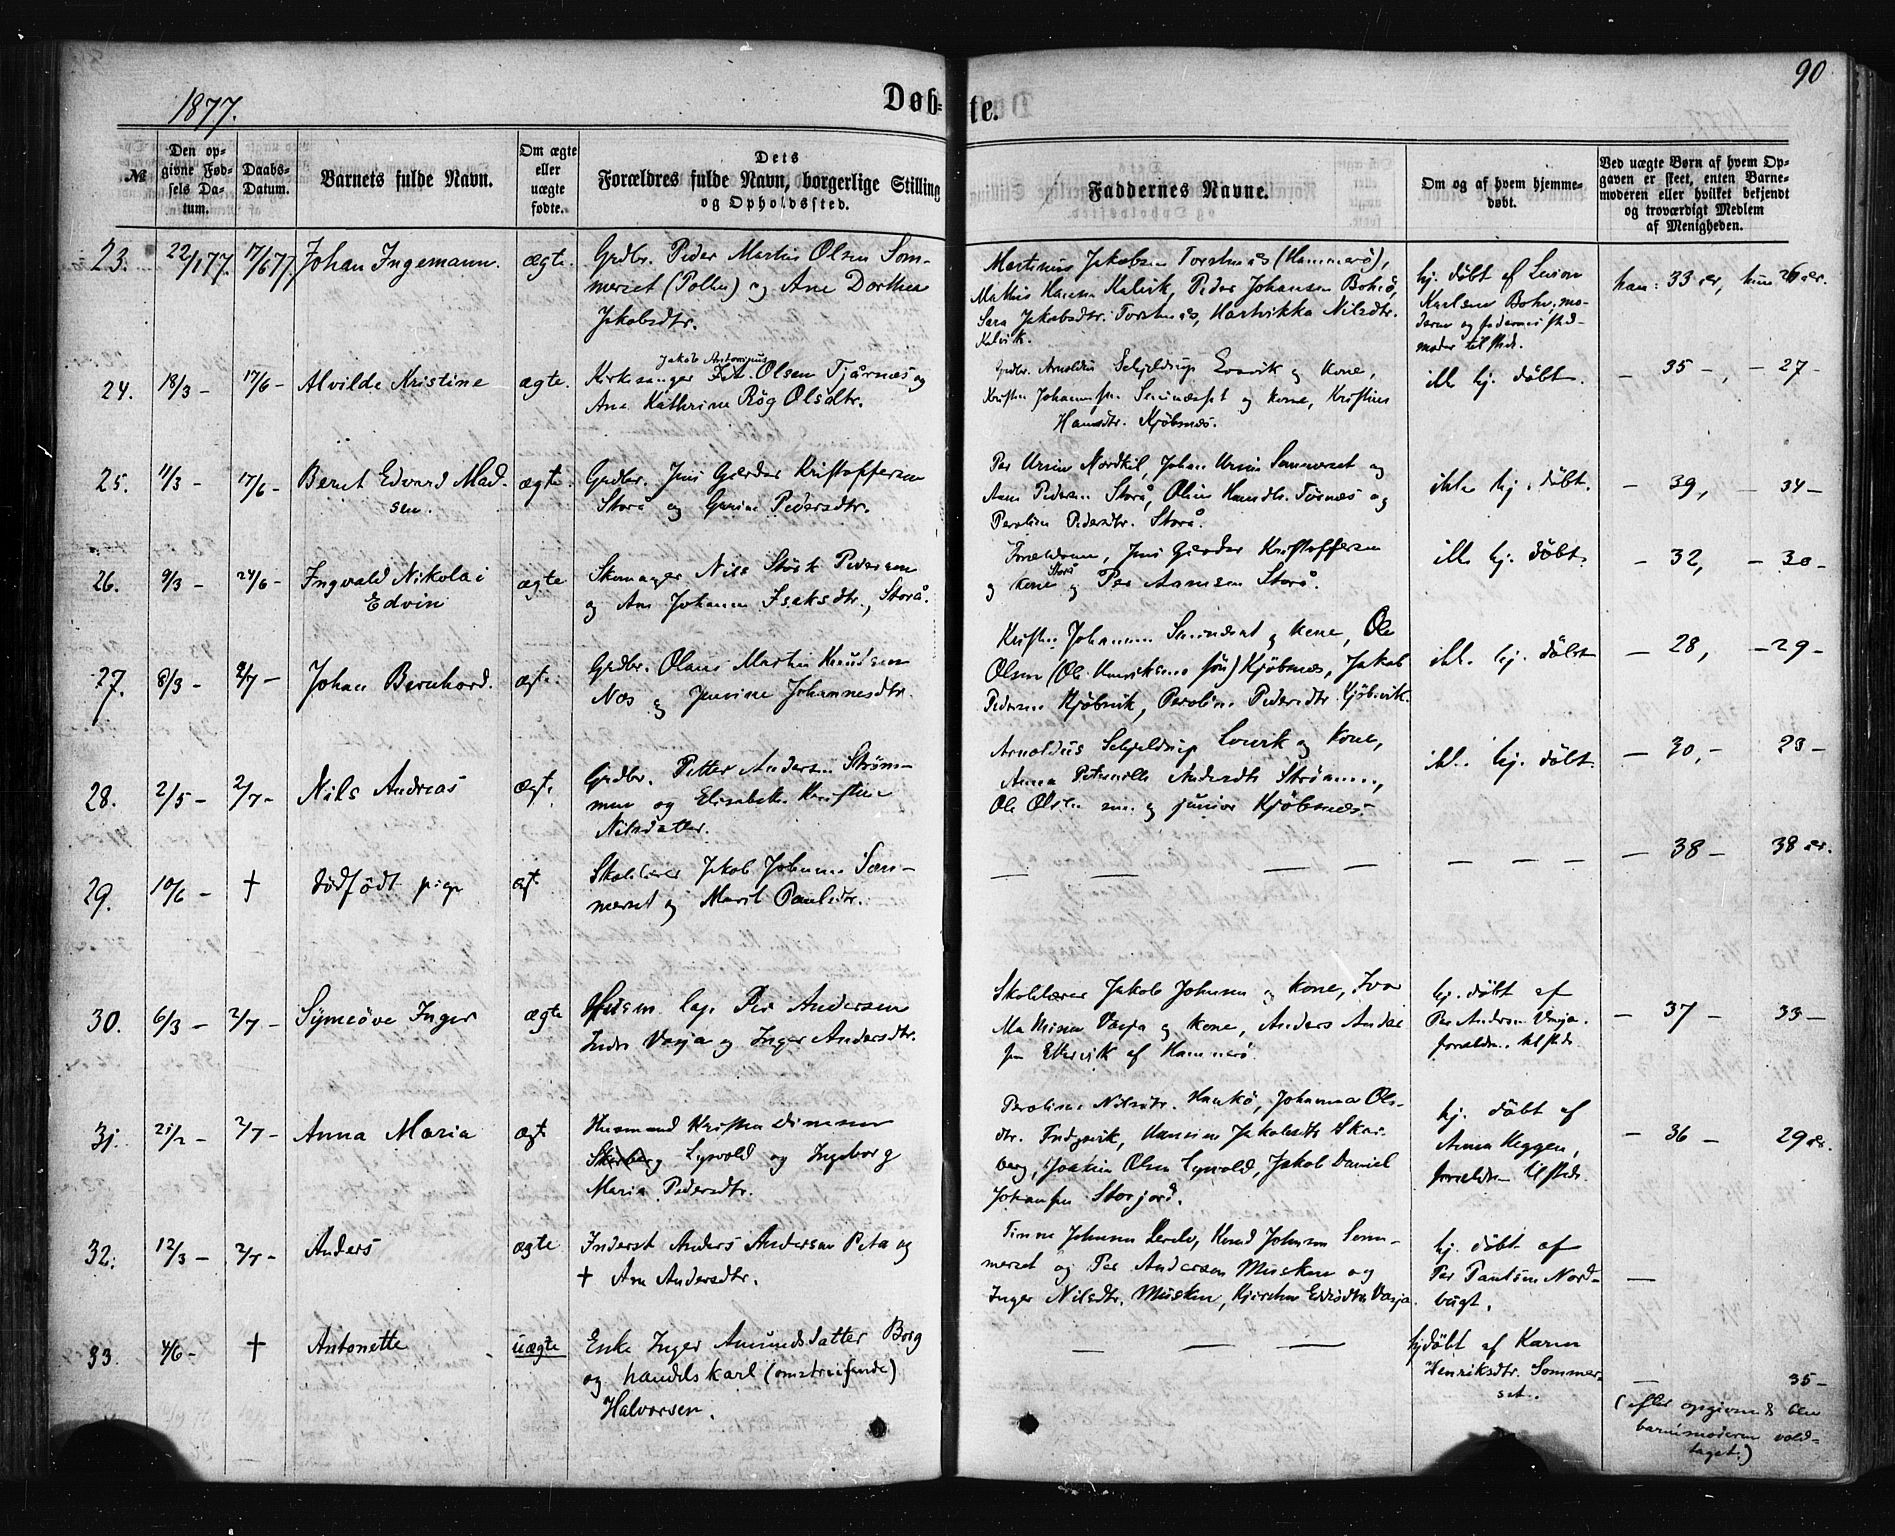 1877.
Døb-
te.
90
№
Den op-
givne Fød-
sels Da-
tum.
Daabs-
Datum.
Barnets fulde Navn.
Om ægte
eller
uægte
fødte.
Dets
Forældres fulde Navn, borgerlige Stilling
og Opholdssted.
Faddernes Navne.
Om og af hvem hjemme-
døbt.
Ved uægte Børn af hvem Op-
gaven er skeet, enten Barne-
moderen eller hvilket bekjendt
og troværdigt Medlem
af Menigheden.
23. 22/1 77. 17/6 77. Johan Ingemann. ægte.
Grdbr. Peder Martin Olsen Som-
merset (Pollen) og Ane Dorthea
Jakobsdtr.
Martinus Jakobsen Torstnæs (Hammerø),
Mathis Hansen Kalvik, Peder Johansen Bohrø,
Sara Jakobsdtr. Torstnæs, Hartvikka Nilsdtr.
Kalvik.
hj. døbt af
Karlsen Bohr, mo-
deren og
moder tilstede.
han: 33 år, hun: 26 år.
24. 18/3 - 17/6 - Alvilde Kristine ægte.
Jakob Antonius
Kirkesanger Olsen Tjårnæs og
Ane Kathrine Røg Olsdtr.
Grdbr. Arnoldus Schjeldrup og kone,
Kristen og kone, Kristine
Hansdtr. Kjøbsnæs.
ikke hj. døbt.
- 35 -, - 27 -
25. 11/3 - 17/6 - Bernt Edvard Mad-
sen. ægte.
Grdbr. Jens Gjerdar Kristoffersen
Storå og Pedersdtr.
Per Ursin Nordkil, Johan Ursin Sommerset og
Pedersen Storå, Olin og
Peroline Pedersdtr. Storå.
ikke hj. døbt.
- 39, - 34 -
26. 9/3 - 24/6 - Ingvald Nikolai
Edvin ægte
Skomager Nils Pedersen
og Ane Johanna Isaksdtr., Storå.
Forældrene, Jens Gjerdar Kristoffersen
Storå
og kone og Per Storå.
ikke hj. døbt.
- 32, - 30 -
27. 8/3 - 2/7 - Johan Bernhard. ægte.
Grdbr. Olaus Martin Knudsen
Næs og Johannesdtr.
og kone, Ole
Olsen (Ole Henriksens søn) Kjøbsnæs, Jakob
Pedersen Kjøbsvik, Peroline Pedersdtr. Kjøbsvik.
ikke hj. døbt
- 28, - 29 -
28. 2/5 - 2/7 - Nils Andreas ægte
Grdbr. Petter Andersen Strøm-
men og Elisabeth Kristine
Nilsdatter.
Arnoldus Schjeldrup og kone,
Anna Petrnelle Andersdtr Strømmen,
Ole Olsen sen. og junior Kjøbsnæs.
ikke hj. døbt.
- 30, - 23 -
29. 10/6 - † dødfødt pige ægte
Skolelærer Jakob Johnsen Som-
merset og Marit Paulsdtr.
— — — —
— — — —
- 38 - 38 år.
30. 6/3 - 2/7 - Synnøve Inger ægte
lap. Per Andersen
Indre Vasja og Inger Andersdtr.
Skolelærer Jakob Johnsen og kone, Ivar
Vasja og kone, Anders Ander
sen af Hammerø.
hj. døbt af
Per Andersen Vasja.
forældrene tilstede.
- 37 - 33 -
31. 21/2 - 2/7 - Anna Maria ægte
Husmand Kristen
Skarberg Lysvold og Ingeborg
Maria Pedersdtr.
Peroline Nilsdtr. Haukø, Johanna Ols-
dtr. Jakobsdtr Skar-
berg, Joakim Olsen Lysvold, Jakob Daniel
Johansen Storjord.
hj. døbt af
Anna Heggen,
forældrene tilstede.
- 36 - 29 år.
32. 12/3 - 2/7 - Anders ægte
Inderst Anders Andersen og
† Ane Andersdtr.
Johnsen Knud Johnsen Som-
merset og Per Andersen Musken og
Inger Nilsdtr. Musken, Vasja.
hj. døbt af
Per Paulsen Nord-
bugt.
—
33. 4/6 - † Antonette uægte
Enke Inger Amundsdatter Borg
og handelskarl (omstreifende)
Halvorsen.
— — —
hjdøbt af Karen
Henriksdtr. Sommer-
set.
— 35 -
(efter opgivende blev
barnemoderen vold-
taget.)